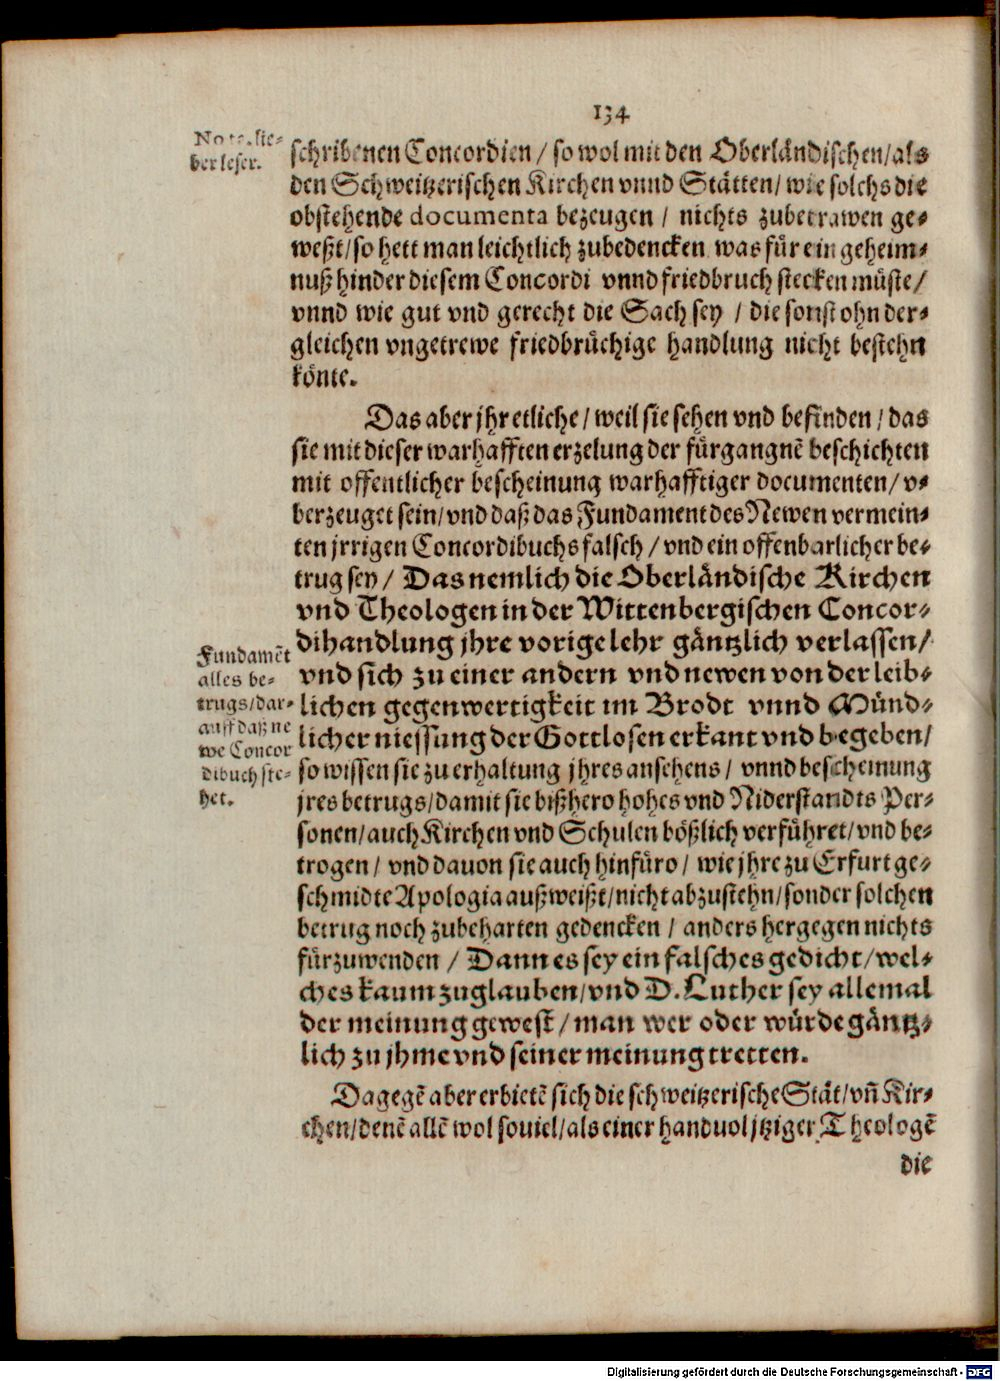 134
Nota, lie-
ber leser.
schribenen Concordien / so wol mit den Oberländischen / als
den Schweitzerischen Kirchen vnnd Stätten / wie solchs die
obstehende documenta bezeugen / nichts zubetrawen ge-
weßt / so hett man leichtlich zubedencken was für ein geheim-
nuß hinder diesem Concordi vnnd friedbruch stecken müste /
vnnd wie gut vnd gerecht die Sach sey / die sonst ohn der-
gleichen vngetrewe friedbrüchige handlung nicht bestehn
könte.
Das aber jhr etliche / weil sie sehen vnd befinden / das
sie mit dieser warhafften erzelung der fürgangnẽ beschichten
mit offentlicher bescheinung warhafftiger documenten / v-
berzeuget sein / vnd daß das Fundament des Newen vermein-
ten jrrigen Concordibuchs falsch / vnd ein offenbarlicher be-
trug sey / Das nemlich die Oberländische Kirchen
vnd Theologen in der Wittenbergischen Concor-
dihandlung jhre vorige lehr gäntzlich verlassen /
vnd sich zu einer andern vnd newen von der leib-
lichen gegenwertigkeit im Brodt vnnd Münd-
licher niessung der Gottlosen erkant vnd begeben /
so wissen sie zu erhaltung jhres ansehens / vnnd bescheinung
jres betrugs / damit sie bißhero hohes vnd Niderstandts Per-
sonen / auch Kirchen vnd Schulen bößlich verführet / vnd be-
trogen / vnd dauon sie auch hinfüro / wie jhre zu Erfurt ge-
schmidte Apologia außweißt / nicht abzustehn / sonder solchen
betrug noch zubeharten gedencken / anders hergegen nichts
fürzuwenden / Dann es sey ein falsches gedicht / wel-
ches kaum zuglauben / vnd D. Luther sey allemal
der meinung gewest / man wer oder würde gäntz-
lich zu jhme vnd seiner meinung tretten.
Fundamẽt
alles be-
trugs / dar-
auff daß ne
we Concor
dibuch ste-
het.
Dagegẽ aber erbietẽ sich die schweitzerische Stät / vñ Kir-
chen / denẽ allẽ wol souiel / als einer handuol jtziger Theologẽ
die
Digitalisierung gefördert durch die Deutsche Forschungsgemeinschaft - DFG